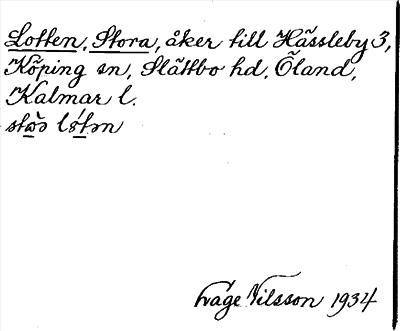 Lotten, Stora, åker till Hässleby 3,
Köping sn, Slättbo hd, Öland,
Kalmar l.
Nilsson 1934